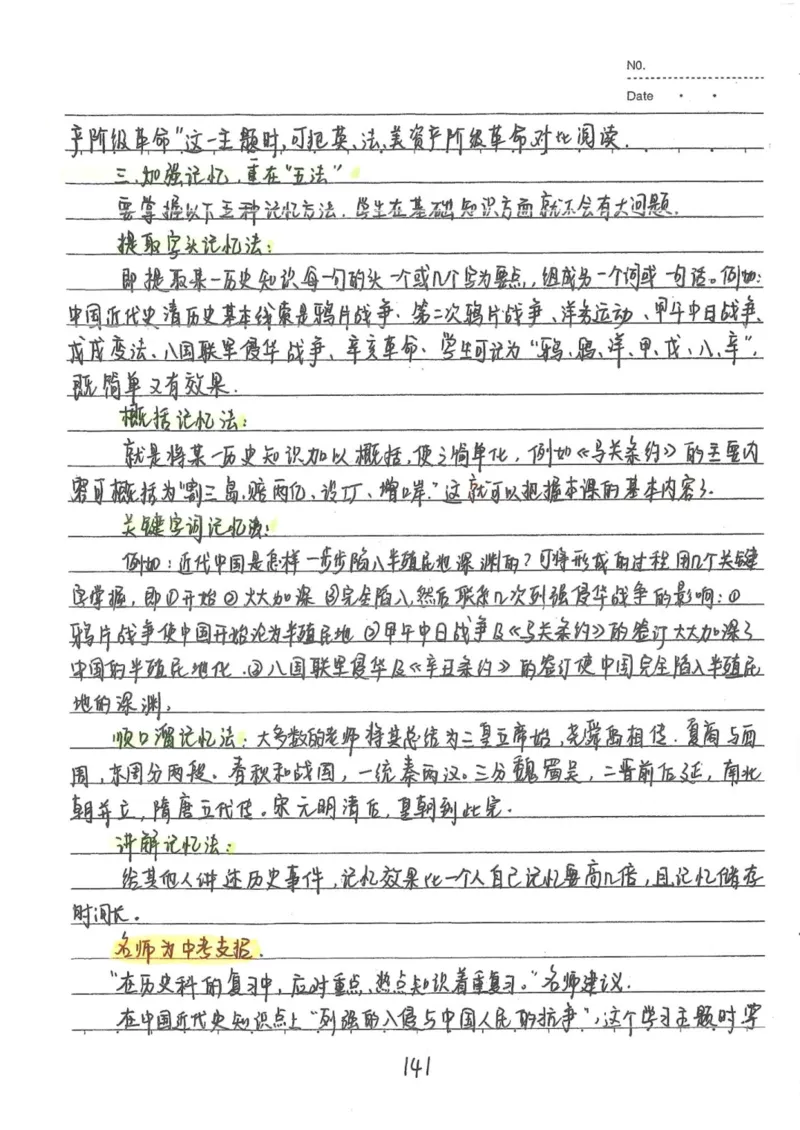 NO.
Date
产阶级革命"这一主题时,可把英、法、美资产阶级革命对比阅读.
三.加强记忆,重在"五法"
要掌握以下五种记忆方法,学生在基础知识方面就不会有大问题.
提取字头记忆法:
即提取某一历史知识每一句的头一个或几个字为要点,组成另一个词或一句话。例如:
中国近代史清历史基本线索是鸦片战争、第二次鸦片战争、洋务运动、甲午中日战争、
戊戌变法、八国联军侵华战争、辛亥革命、学生可记为"鸦、鸦、洋、甲、戊、八、辛",
既简单又有效果.
概括记忆法:
就是将某一历史知识加以概括,使之简单化,例如《马关条约》的主要内
容可概括为"割三岛、赔两亿、设厂、增口岸."这就可以把握本课的基本内容了.
关键字词记忆法:
例如:近代中国是怎样一步步陷入半殖民地深渊的?可将形成的过程用几个关键
字掌握,即①开始②大大加深③完全陷入,然后联系几次列强侵华战争的影响:①
鸦片战争使中国开始沦为半殖民地②甲午中日战争及《马关条约》的签订大大加深了
中国的半殖民地化.③八国联军侵华及《辛丑条约》的签订使中国完全陷入半殖民
地的深渊,
顺口溜记忆法:大多数的老师将其总结为三皇五帝始,尧舜禹相传.夏商与西
周,东周分两段。春秋和战国,一统秦两汉。三分魏蜀吴,二晋前后延,南北
朝并立,隋唐五代传。宋元明清后,皇朝到此完.
讲解记忆法:
给其他人讲述历史事件,记忆效果比一个人自己记忆要高几倍,且记忆储存
时间长。
名师为中考支招.
"在历史科的复习中,应对重点、热点知识着重复习。"名师建议.
在中国近代史知识点上"列强的入侵与中国人民的抗争",这个学习主题时学
141